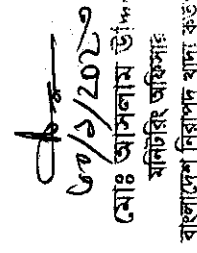 ৩০/১/২০২৩
মোঃ আসলাম উদ্দি
মনিটরিং অফিসার
বাংলাদেশ নিরাপদ খাদ্য কর্তৃ